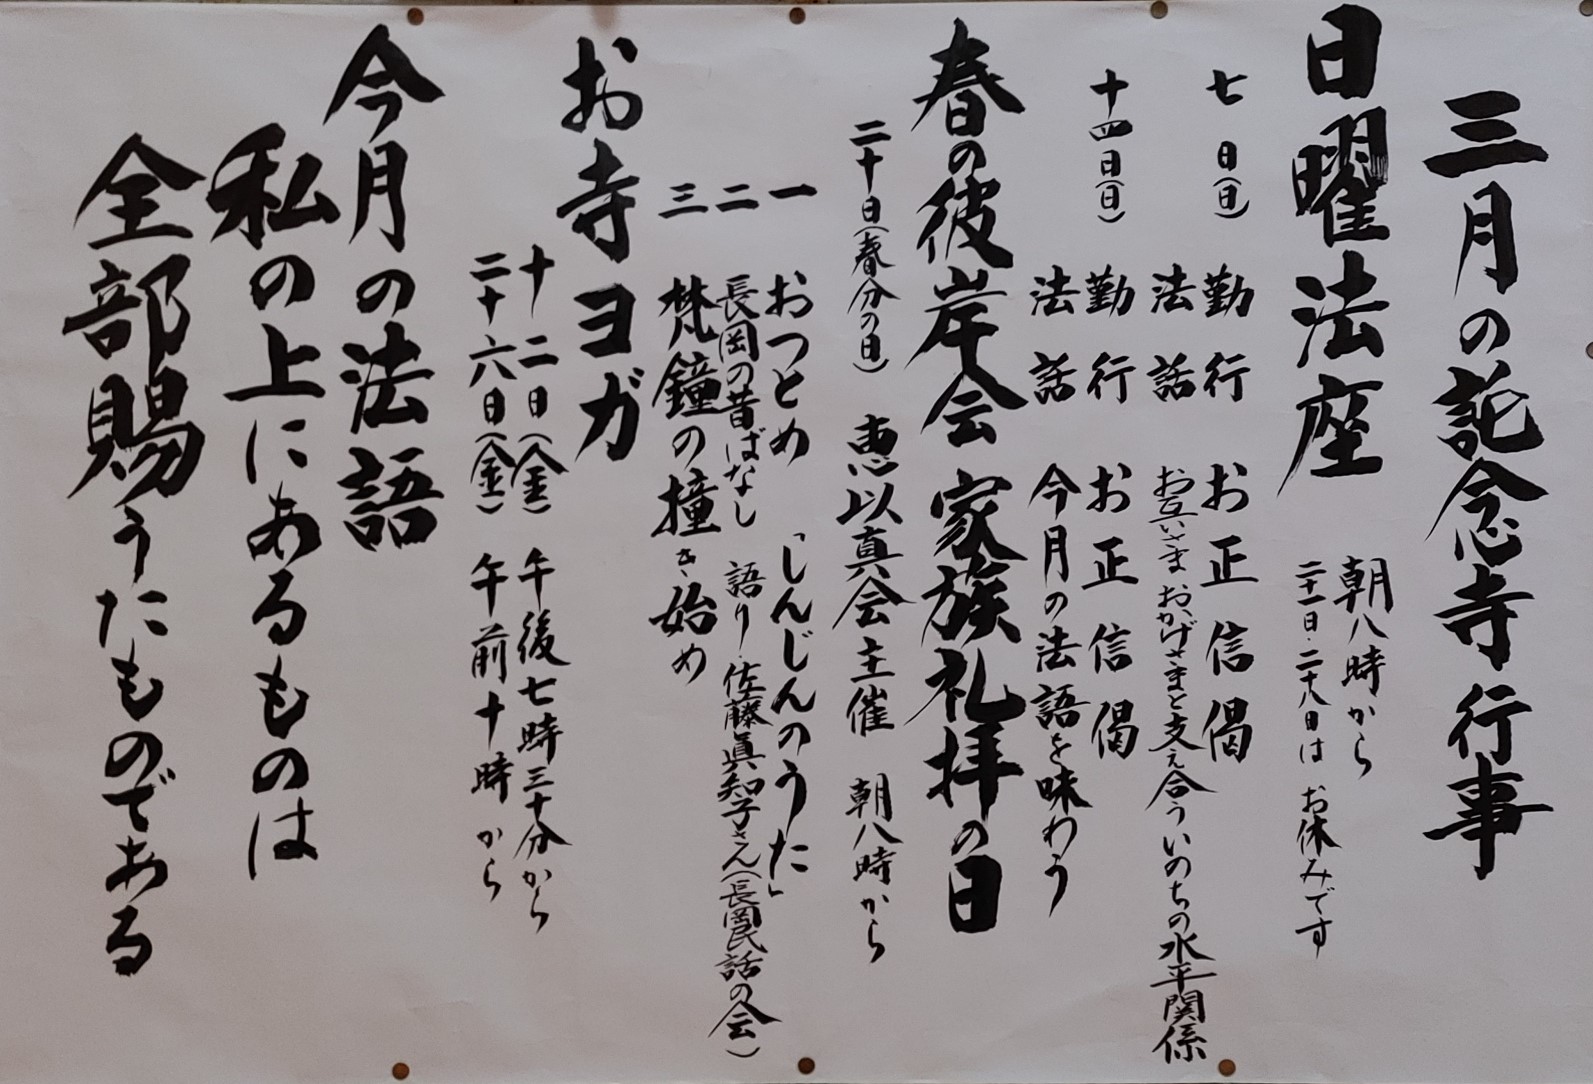 三月の託念寺行事
日曜法座
朝八時から
二十一日・二十八日は お休みです
七日(日) 勤行 お正信偈
法話 お互いさま おかげさまと支え合ういのちの水平関係
十四日(日) 勤行 お正信偈
法話 今月の法語を味わう
春の彼岸会 家族礼拝の日
二十日(春分の日) 恵以真会主催 朝八時から
一 おつとめ 「しんじんのうた」
二 長岡の昔ばなし 語り・佐藤眞知子さん(長岡民話の会)
三 梵鐘の撞き始め
お寺ヨガ
十二日(金) 午後七時三十分から
二十六日(金) 午前十時から
今月の法語
私の上にあるものは
全部賜うたものである